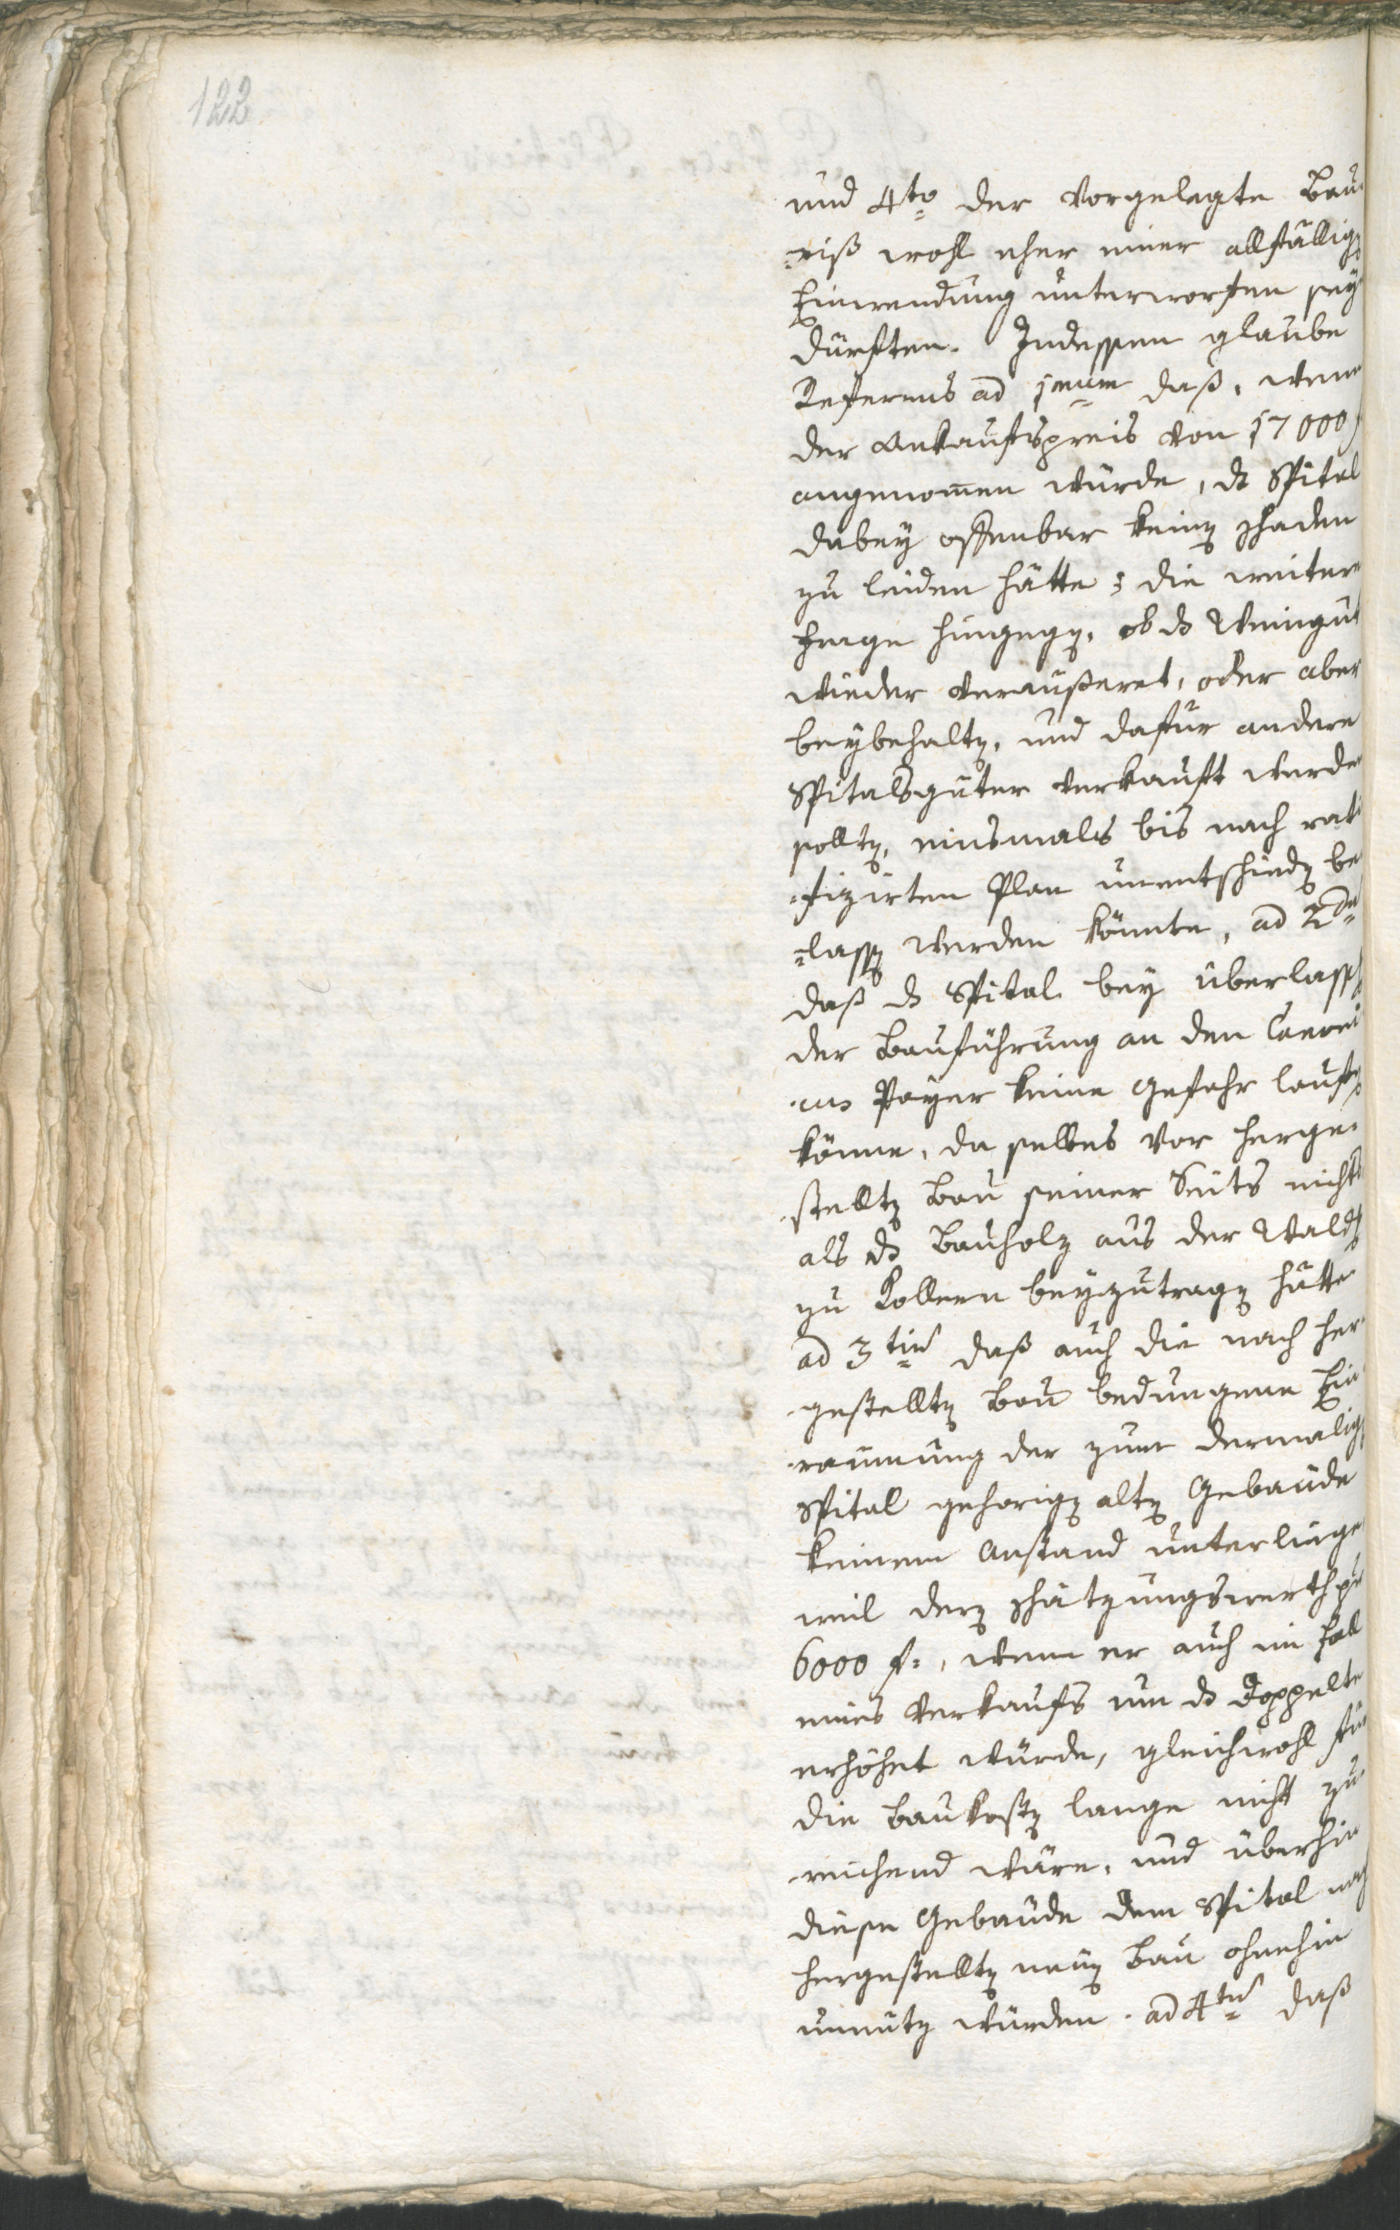 122
und 4to der vorgelegte Bau-
-riß wohl eher einer allfällig
Einwendung unterworfen sey
dürften. Indessen glaube
Referens ad 1mum daß, wenn
der Ankaufspreis von 17000 f
angenom̄en würde, ds Spital
dabey offenbar kein schaden
zu leiden hätte; die weitere
Frage hingeg, ob ds Weingut
wieder veräußeret, oder aber
beybehalt, und dafür andere
Spitalsgüter verkauft werde
sollt, einsmals bis nach rati
-fizirten Plan unentschied be
-lass werden könnte, ad 2do
daß ds Spital bey überlass
der Bauführung an den Curat
-us Payer keine Gefahr lauf
könne, da selbes vor herge-
-stellt Bau seiner Seits nichts
als ds Bauholz aus der Wald
zu Kollern beyzutrag hätte
ad 3tium daß auch die nach her-
-gestellt Bau bedungene Ein
-raumung der zum dermalig
Spital gehörig alt Gebäude
keinem Anstand unterliege
weil der schätzungswerth per
6000 f:, wenn er auch im Fall
eines Verkaufs um ds Doppelte
erhöhet würde, gleichwohl für
die Baukost lange nicht zu-
-reichend wäre, und überhin
diese Gebäude dem Spital nach
hergestellt neu Bau ohnehin
unnütz würden. ad 4tum daß